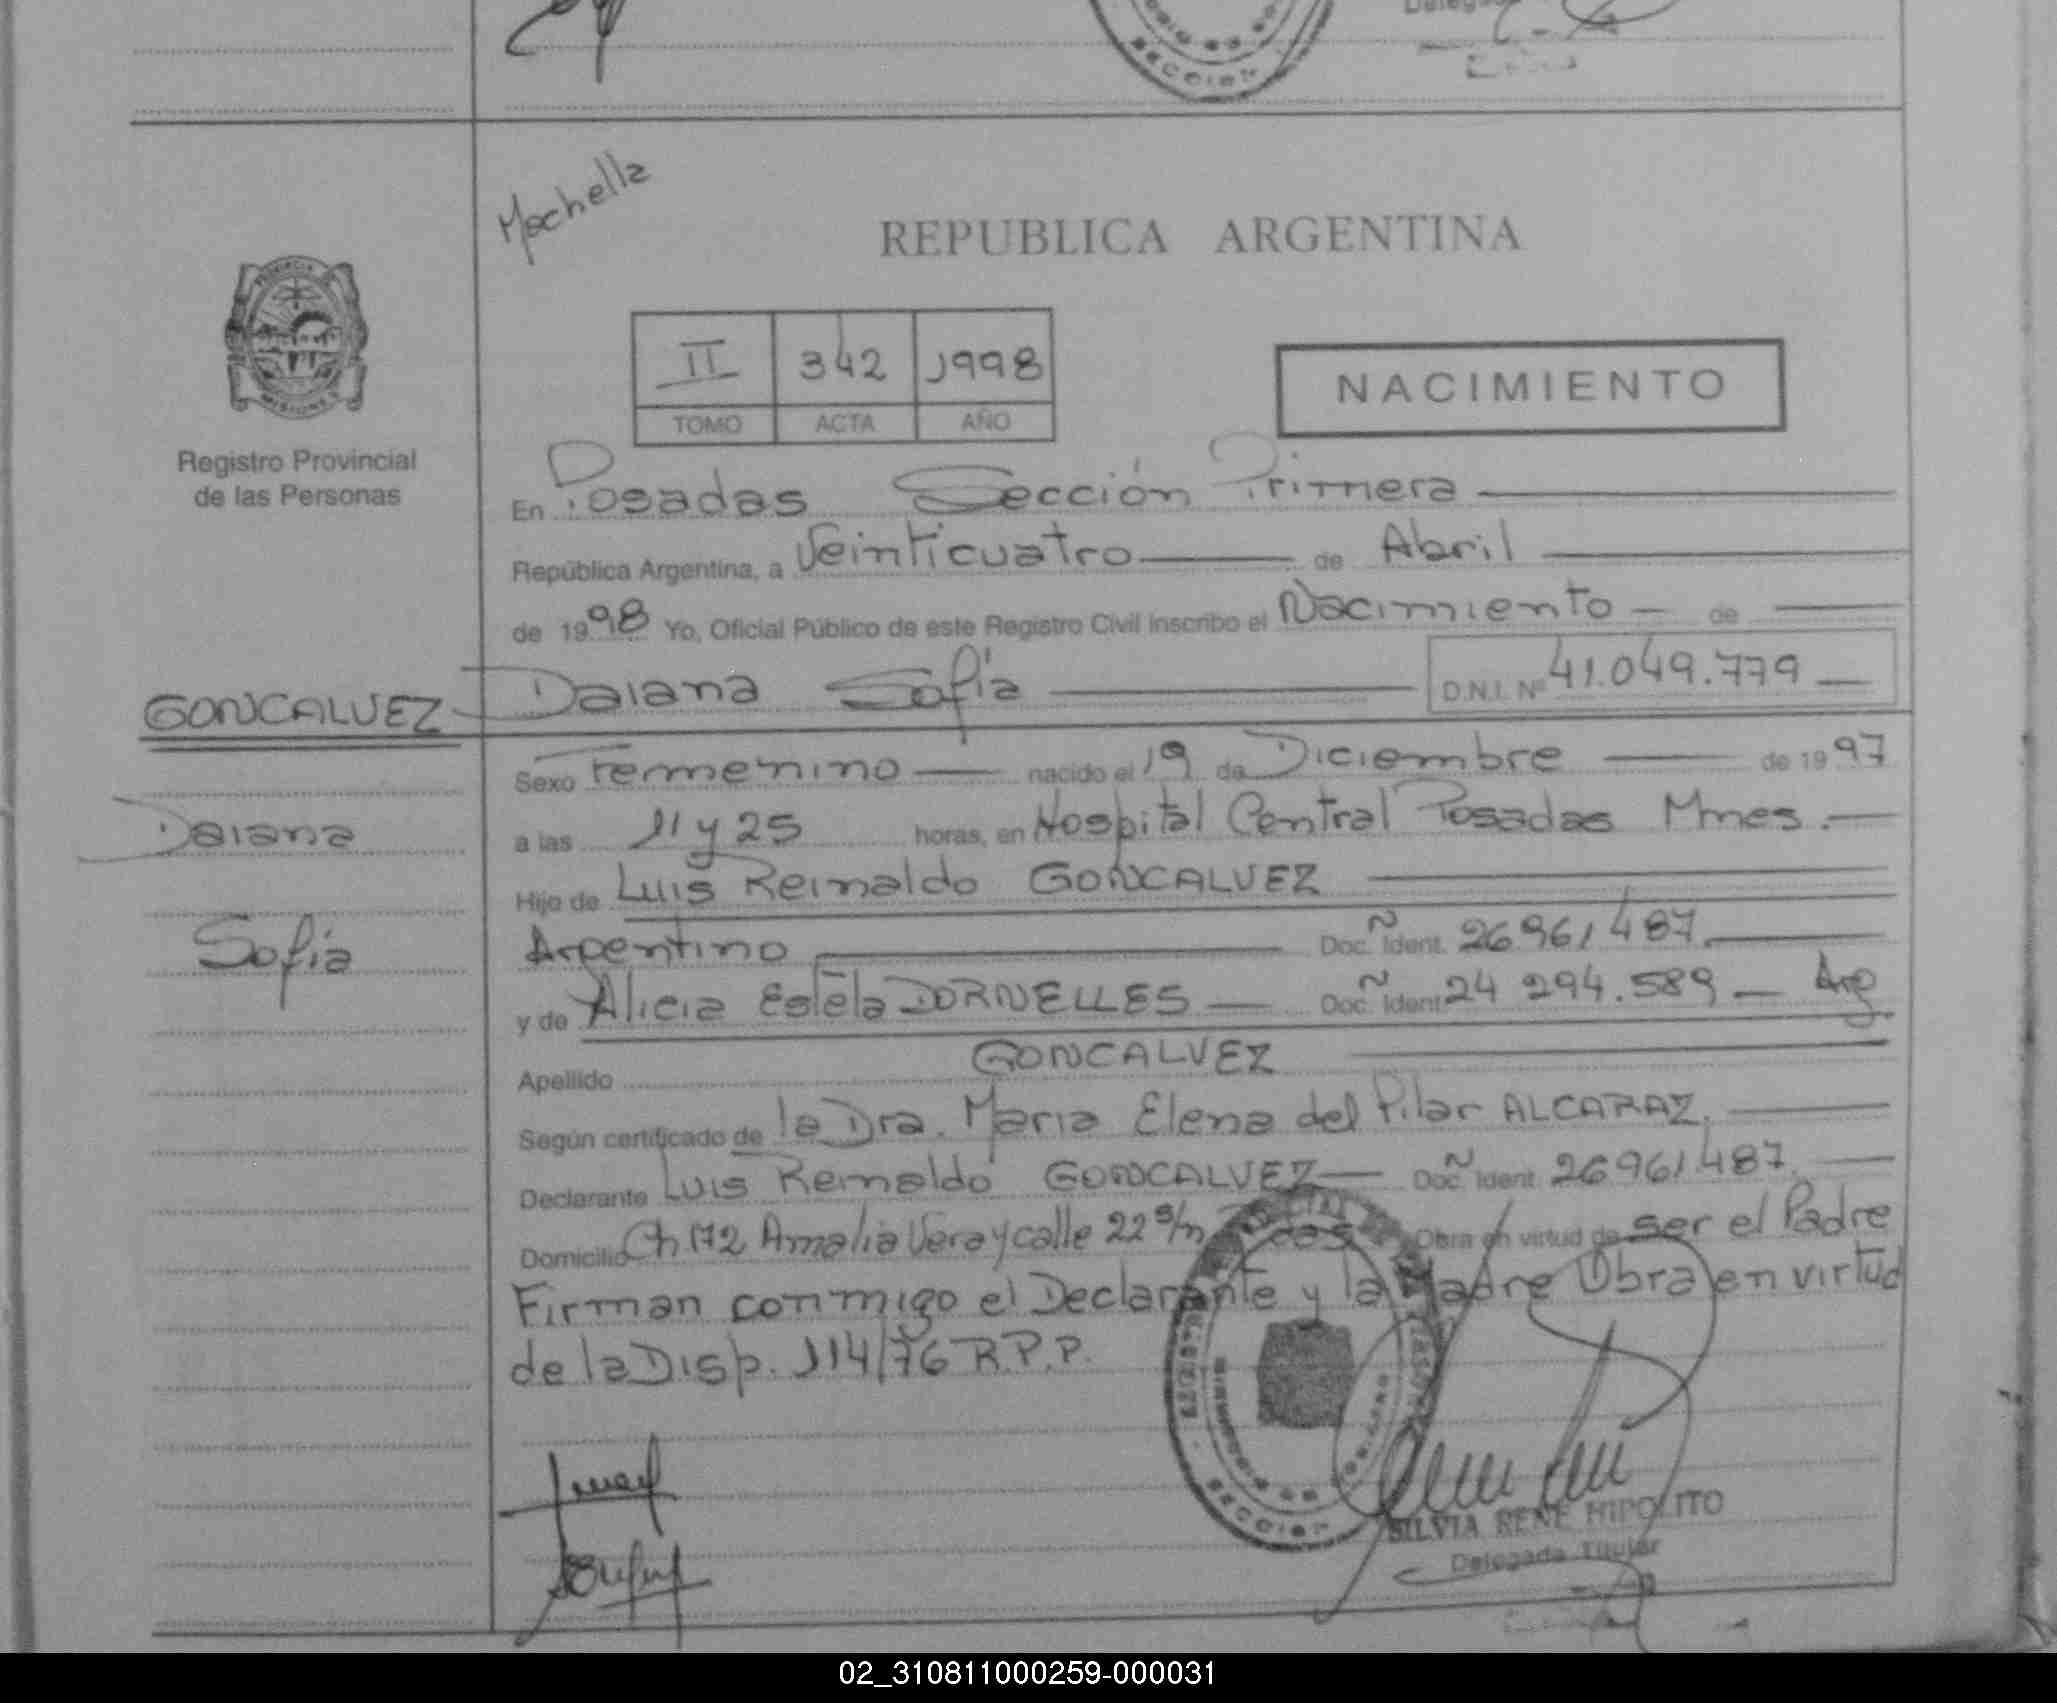 SECCION
Mochella
REPUBLICA ARGENTINA
PROVINCIA
MISIONES
II 342 1998
TOMO ACTA AÑO
NACIMIENTO
Registro Provincial
de las Personas
En Posadas Sección Primera
República Argentina, a Veinticuatro de Abril
de 1998 Yo, Oficial Público de este Registro Civil inscribo el Nacimiento de
GONCALVEZ Daiana Sofía D.N.I. Nº 41.049.779
Sexo Femenino nacido el 19 de Diciembre de 1997
Daiana
a las 11 y 25 horas, en Hospital Central Posadas Mnes.
Hijo de Luis Reinaldo GONCALVEZ
Sofía
Argentino Doc. Ident. 26961487
y de Alicia Estela DORNELLES Doc. Ident. 24 294.589 Arg
Apellido GONCALVEZ
Según certificado de la Dra. Maria Elena del Pilar ALCARAZ.
Declarante Luis Reinaldo GONCALVEZ Doc. Ident. 26961487.
Domicilio Ch 172 Amalia Vera y calle 22 s/n Obra en virtud de ser el Padre
Firman conmigo el Declarante y la Madre Obra en virtud
de la Disp. 114/76 R.P.P.
SECCION
SILVIA RENE HIPOLITO
Delegada Titular
02_310811000259-000031